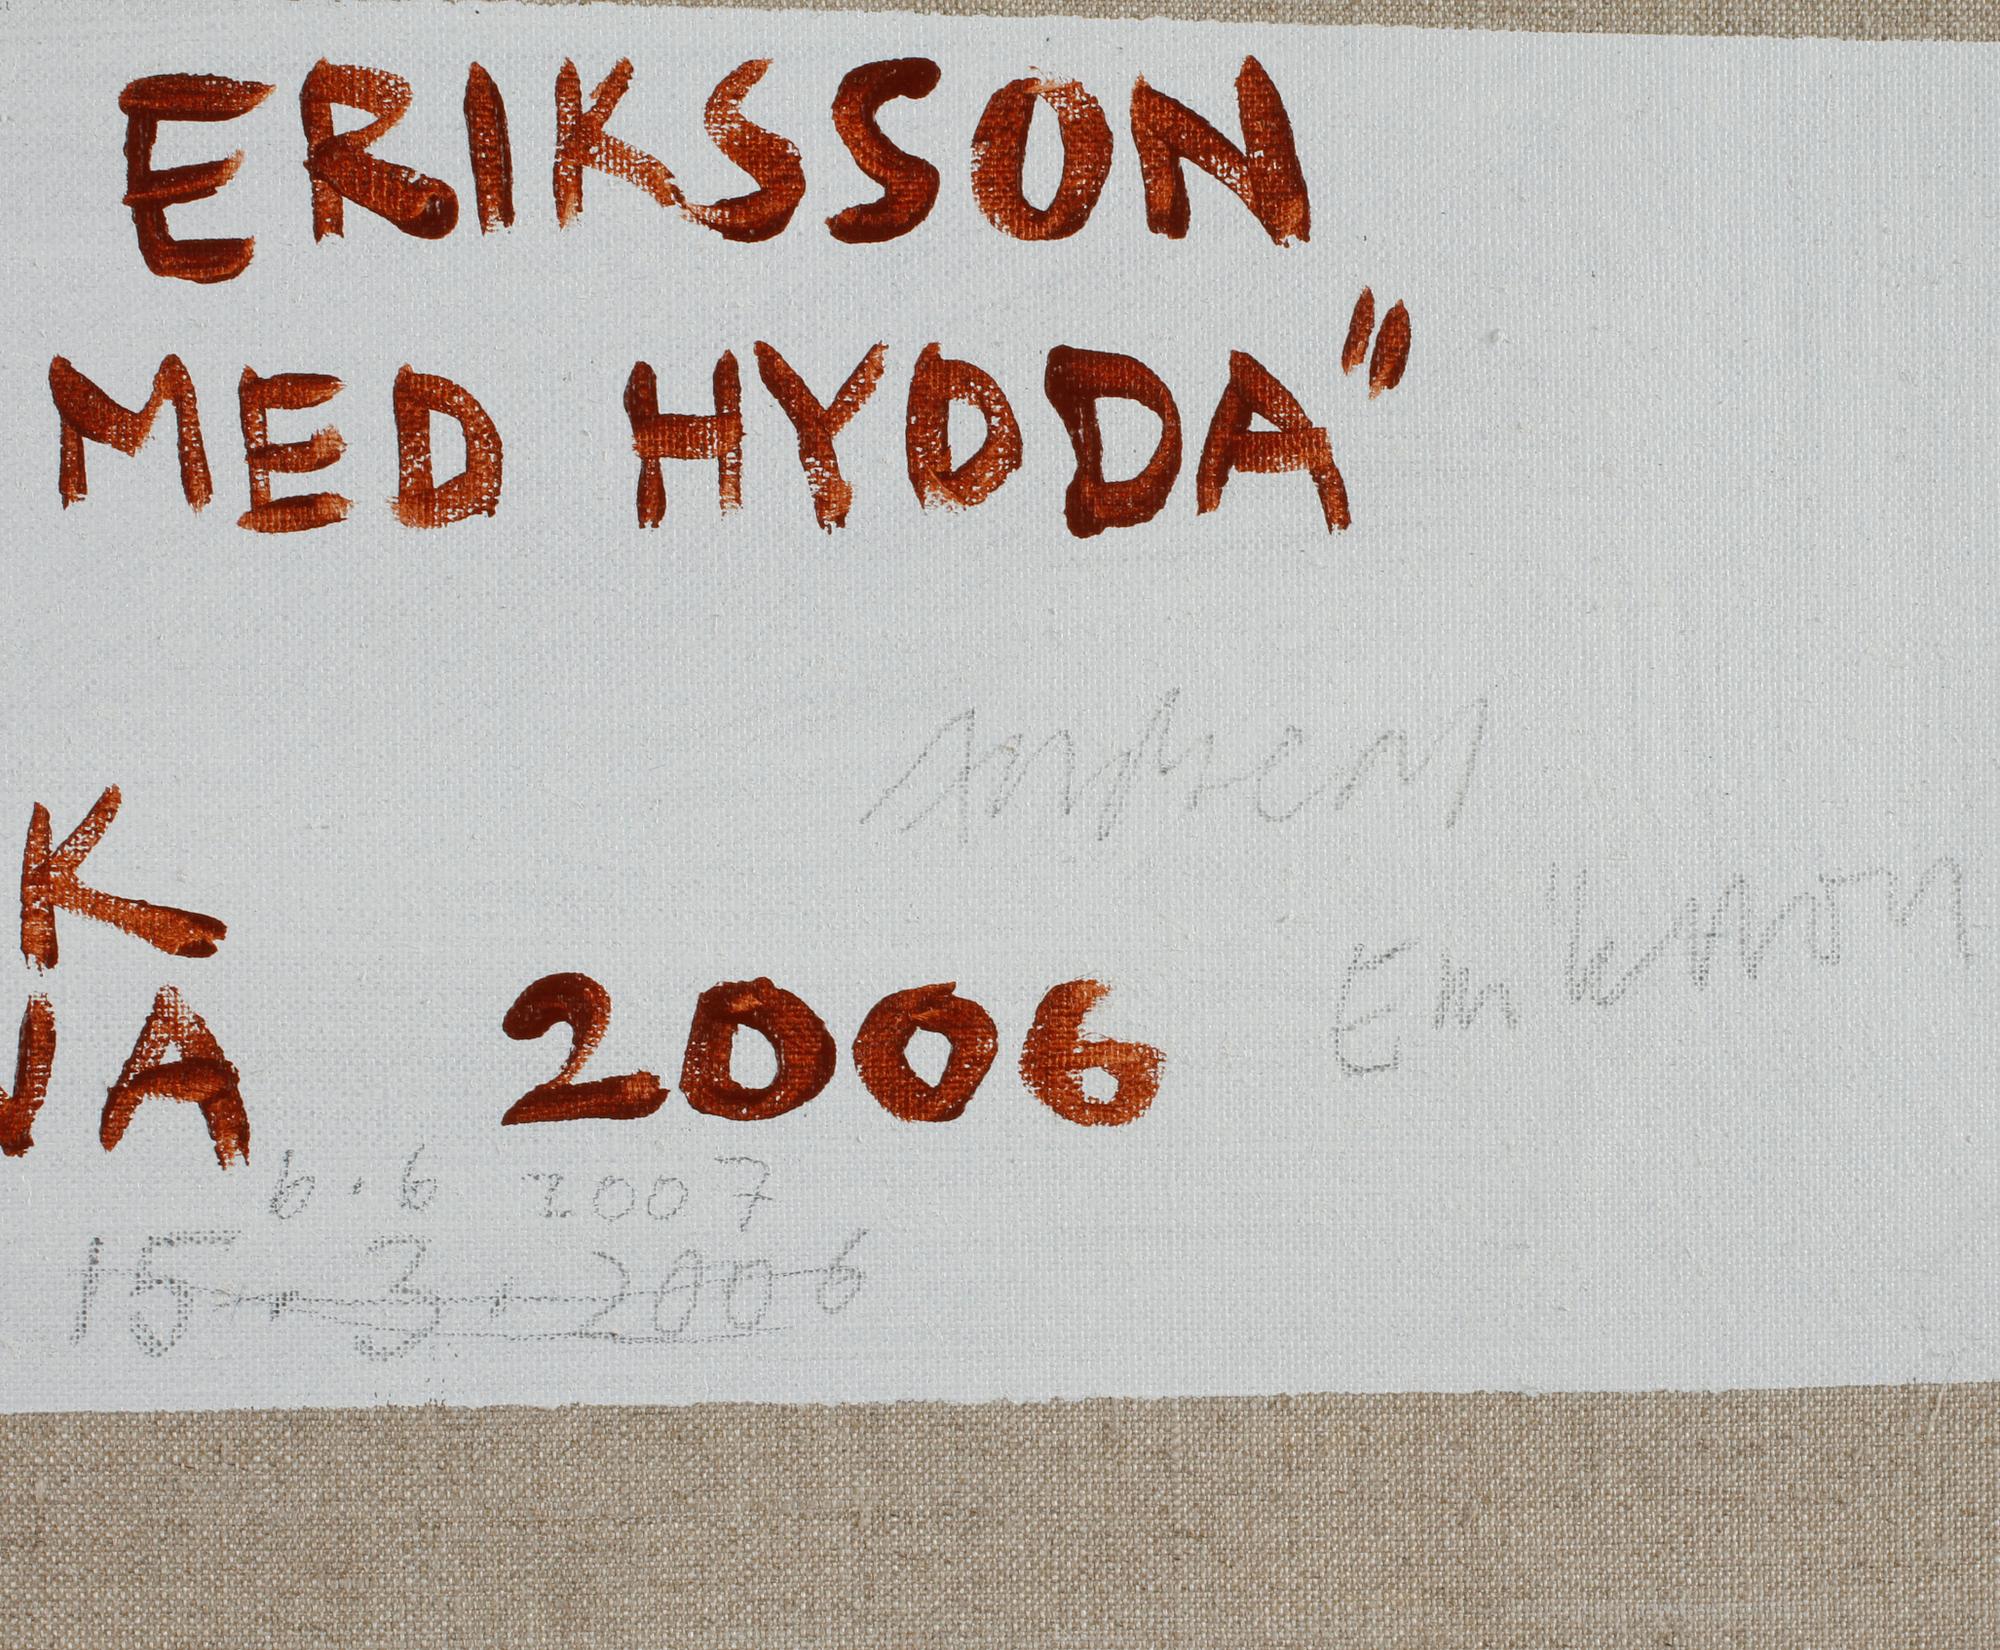 ERIKSSON
MED HYDDA"
Andreas
K
Eriksson
NA 2006
6.6 2007
15.3.2006